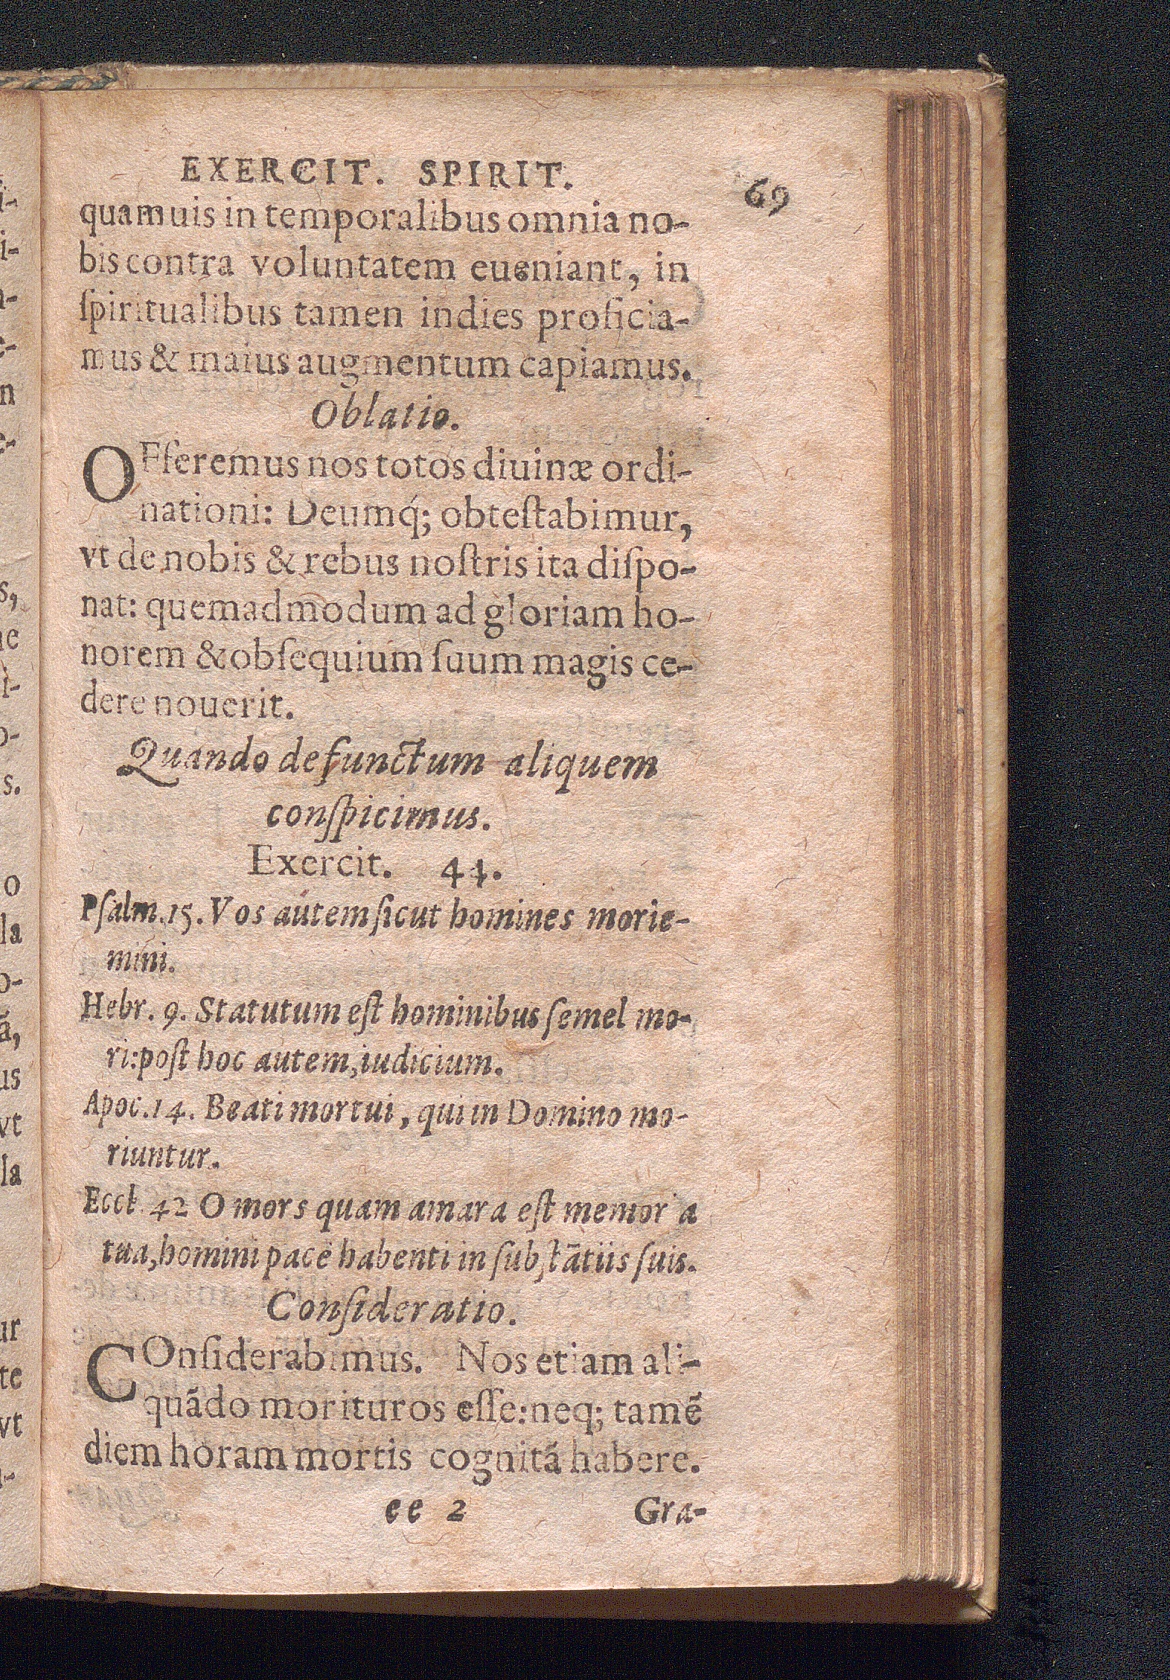 EXERCIT. SPIRIT.
69
quamuis in temporalibus omnia no-
bis contra voluntatem eueniant, in
ſpiritualibus tamen indies proficia-
mus & maius augmentum capiamus.
Oblatio.
OFferemus nos totos diuinæ ordi-
nationi: Deumq́; obteſtabimur,
vt de nobis & rebus noſtris ita diſpo-
nat: quemadmodum ad gloriam ho-
norem & obſequium ſuum magis ce-
dere nouerit.
Quando defunctum aliquem
conſpicimus.
Exercit. 44.
Pſalm. 15. Vos autem ſicut homines morie-
mini.
Hebr. 9. Statutum eſt hominibus ſemel mo-
ri: poſt hoc autem, iudicium.
Apoc. 14. Beati mortui, qui in Domino mo-
riuntur.
Eccl. 42 O mors quam amara eſt memor a
tua, homini pacē habenti in ſubſtātiis ſuis.
Conſideratio.
COnſiderabimus. Nos etiam ali-
quādo morituros eſſe: neq; tamē
diem horam mortis cognitā habere.
ee 2 Gra-